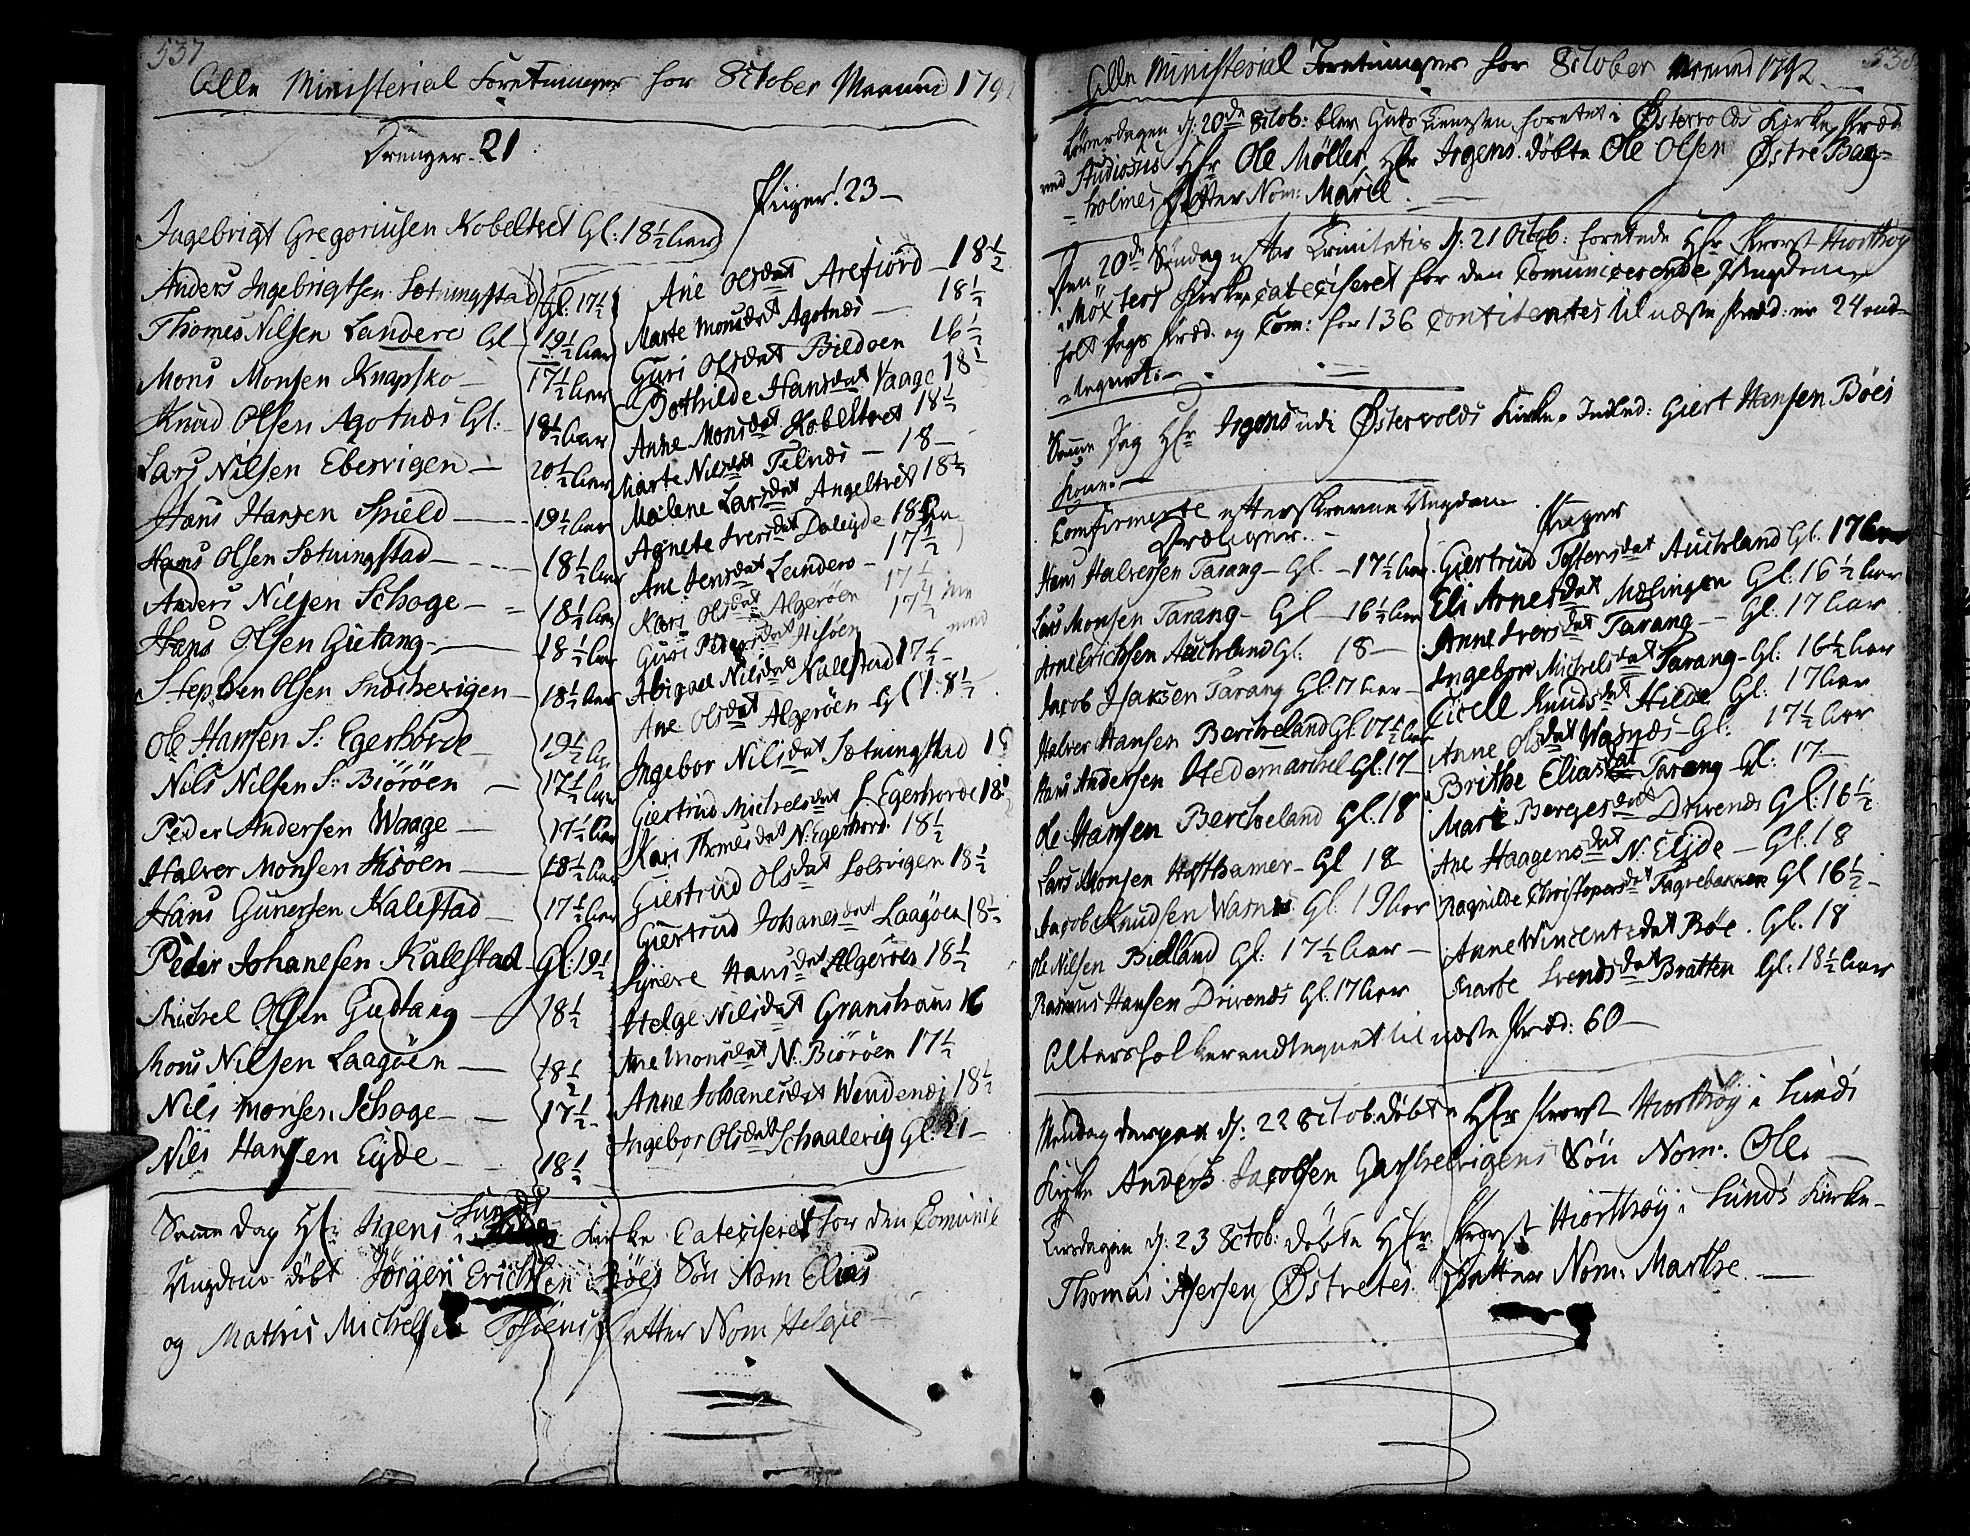 537
Alle Ministerial Forretninger for 8ctober Maaned 179
Drenger 21
Ingebrigt Gregoriusen Kobeltvet Gl: 18 1/2 aar
Anders Ingebrigtsen Sætningstad Gl: 17 1/2
Thomes Nilsen Landere Gl 19 1/2 aar
Mons Monsen Knapsko — 17 1/2 aar
Knud Olsen Agotnæs Gl: 18 1/2 aar
Lars Nilsen Ebesvigen — 20 1/2 aar
Hans Hansen Spield — 19 1/2 aar
Hans Olsen Sætningstad — 18 1/2 aar
Anders Nilsen Schoge — 18 1/2 aar
Hans Olsen Gietang — 18 1/2 aar
Stephen Olsen — 18 1/2 aar
Ole Hansen S: Egerhorde — 19 1/2
Nils Nilsen S: Biöröen — 17 1/2 aar
Peder Andersen Waage — 17 1/2 aar
Halver Monsen Hisöen — 18 1/2 aar
Hans Gunersen Kalestad — 17 1/2 aar
Peder Johanesen Kalestad Gl: 19 1/2
Michel Olsen Gudtang — 18 1/2
Mons Nilsen Laagöen — 18 1/2
Nils Monsen Schoge — 17 1/2
Nils Hansen Eyde — 18 1/2
Piger! 23 —
Ane Olsdat Arefiord — 18 1/2
Marte Monsdat Agotnæs — 18 1/2
Guri Olsdat Bildoen 16 1/2
Bothilde Hansdat Vaage 18 1/2
Anne Monsdat Kobeltvet 18 1/2
Marte Nilsdat Telnæs — 18 —
Malene Larsdat Angeltvet 18 1/2
Agnete Iversdat Daleyde 18
Ane Jensdat Landero — 17 1/2
Kari Olsdat Algeröen 17 1/2
Guri Pedersdat Hisöen 17 1/2
Abigael Nilsdat Kalestad 17 1/2
Ane Olsdat Algeröen Gl 18 1/2
Ingebor Nilsdat Sætningstad 18
Giertrud Michelsdat S Egerhorde 18
Kari Thomesdat N. Egerhord 18 1/2
Giertrud Olsdat Solsvigen 18 1/2
Giertrud Johanesdat Laagöen 18 1/2
Synere Hansdat Algeröen 18 1/2
Helge Nilsdat Granshaus 16
Ane Monsdat N: Biöröen 17 1/2
Anne Johanesdat Wendenæs 18 1/2
Ingebor Olsdat Schaalevig Gl: 21 —
Samme Dag Hr: Irgens i Sunds Kirke Cateciseret for den Comunic
Ungdom döbt Jörgen Erichsen Böes Sön Nom Elias
og Mathis Michelsen Datter Nom Helgie —
538
Alle Ministerial Forretninger for 8ctober Maaned 1792
Löverdagen d: 20de 8ctob: blev Guds Tienesten foretet i Östervolds Kirke, Præd
med Studiosus Hr Ole Møller, Hr Irgens döbte Ole Olsen Østre Bag=
=holmes Datter Nom: Marie.
Den 20de Söndag efter Trinitatis d: 21 Octob: foretede Hr Provst Hiorthöy
i Möxters Kirke, cateciseret for den Comunicerende Ungdom
holt Dags Præd. og Com: for 136 Confitentes til næste Præd: er 24 ant=
=tegnet. —
Samme Dag Hr Irgens udi Östervolds Kirke. Indled: Giert Hansen Böes
Kone. —
Comfirmerte efterskrevne Ungdom
Drenger. —
Hans Halversen Tarang — Gl. — 17 1/2 aar
Lars Monsen Tarang — Gl — 16 1/2 aar
Arne Erichsen Auchland Gl: 18 —
Jacob Isaksen Tarang Gl: 17 aar —
Halver Hansen Bercheland Gl: 17 1/2 aar
Hans Andersen Hedemarchel Gl: 17 —
Ole Hansen Bercheland Gl: 18
Lars Monsen Hofthamer — Gl 18 —
Jacob Knudsen Warnæs Gl: 19 aar
Ole Nilsen Bielland Gl: 17 1/2 aar —
Rasmus Hansen Drivenes Gl: 17 aar
Piger
Giertrud Tostensdat Auchland Gl: 17 aar
Eli Arnesdat Mælingen Gl: 16 1/2 aar
Anne Iversdat Tarang — Gl: 17 aar
Ingebor Michelsdat Tarang — Gl: 16 1/2 aar
Cicell Knudsdat Hilde Gl: 17 aar
Anne Olsdat Warnæs — Gl: 17 1/2 aar
Brithe Eliasdat Tarang — Gl: 17 —
Marie Bergesdat Drivenes Gl: 16 1/2
Ane Haagensdat N. Eyde — Gl: 18
Ragnilde Christophersdat Fagrebakken Gl 16 1/2 —
Anne Wincentzdat Böe. Gl. 18
Marte Svendsdat Bratten Gl: 18 1/2 aar
Altersfolk er antegnet til næste Præd: 60 —
Mandag derpaa d: 22 8ctob. döbte Hr Provst Hiorthöy i Sunds
Kirke Anders Jacobsen Sön Nom: Ole. —
Tirsdagen d: 23 8ctob: döbte Hr Provst Hiorthöy i Sunds Kirke —
Thomas Østretes Datter Nom: Marthe. —